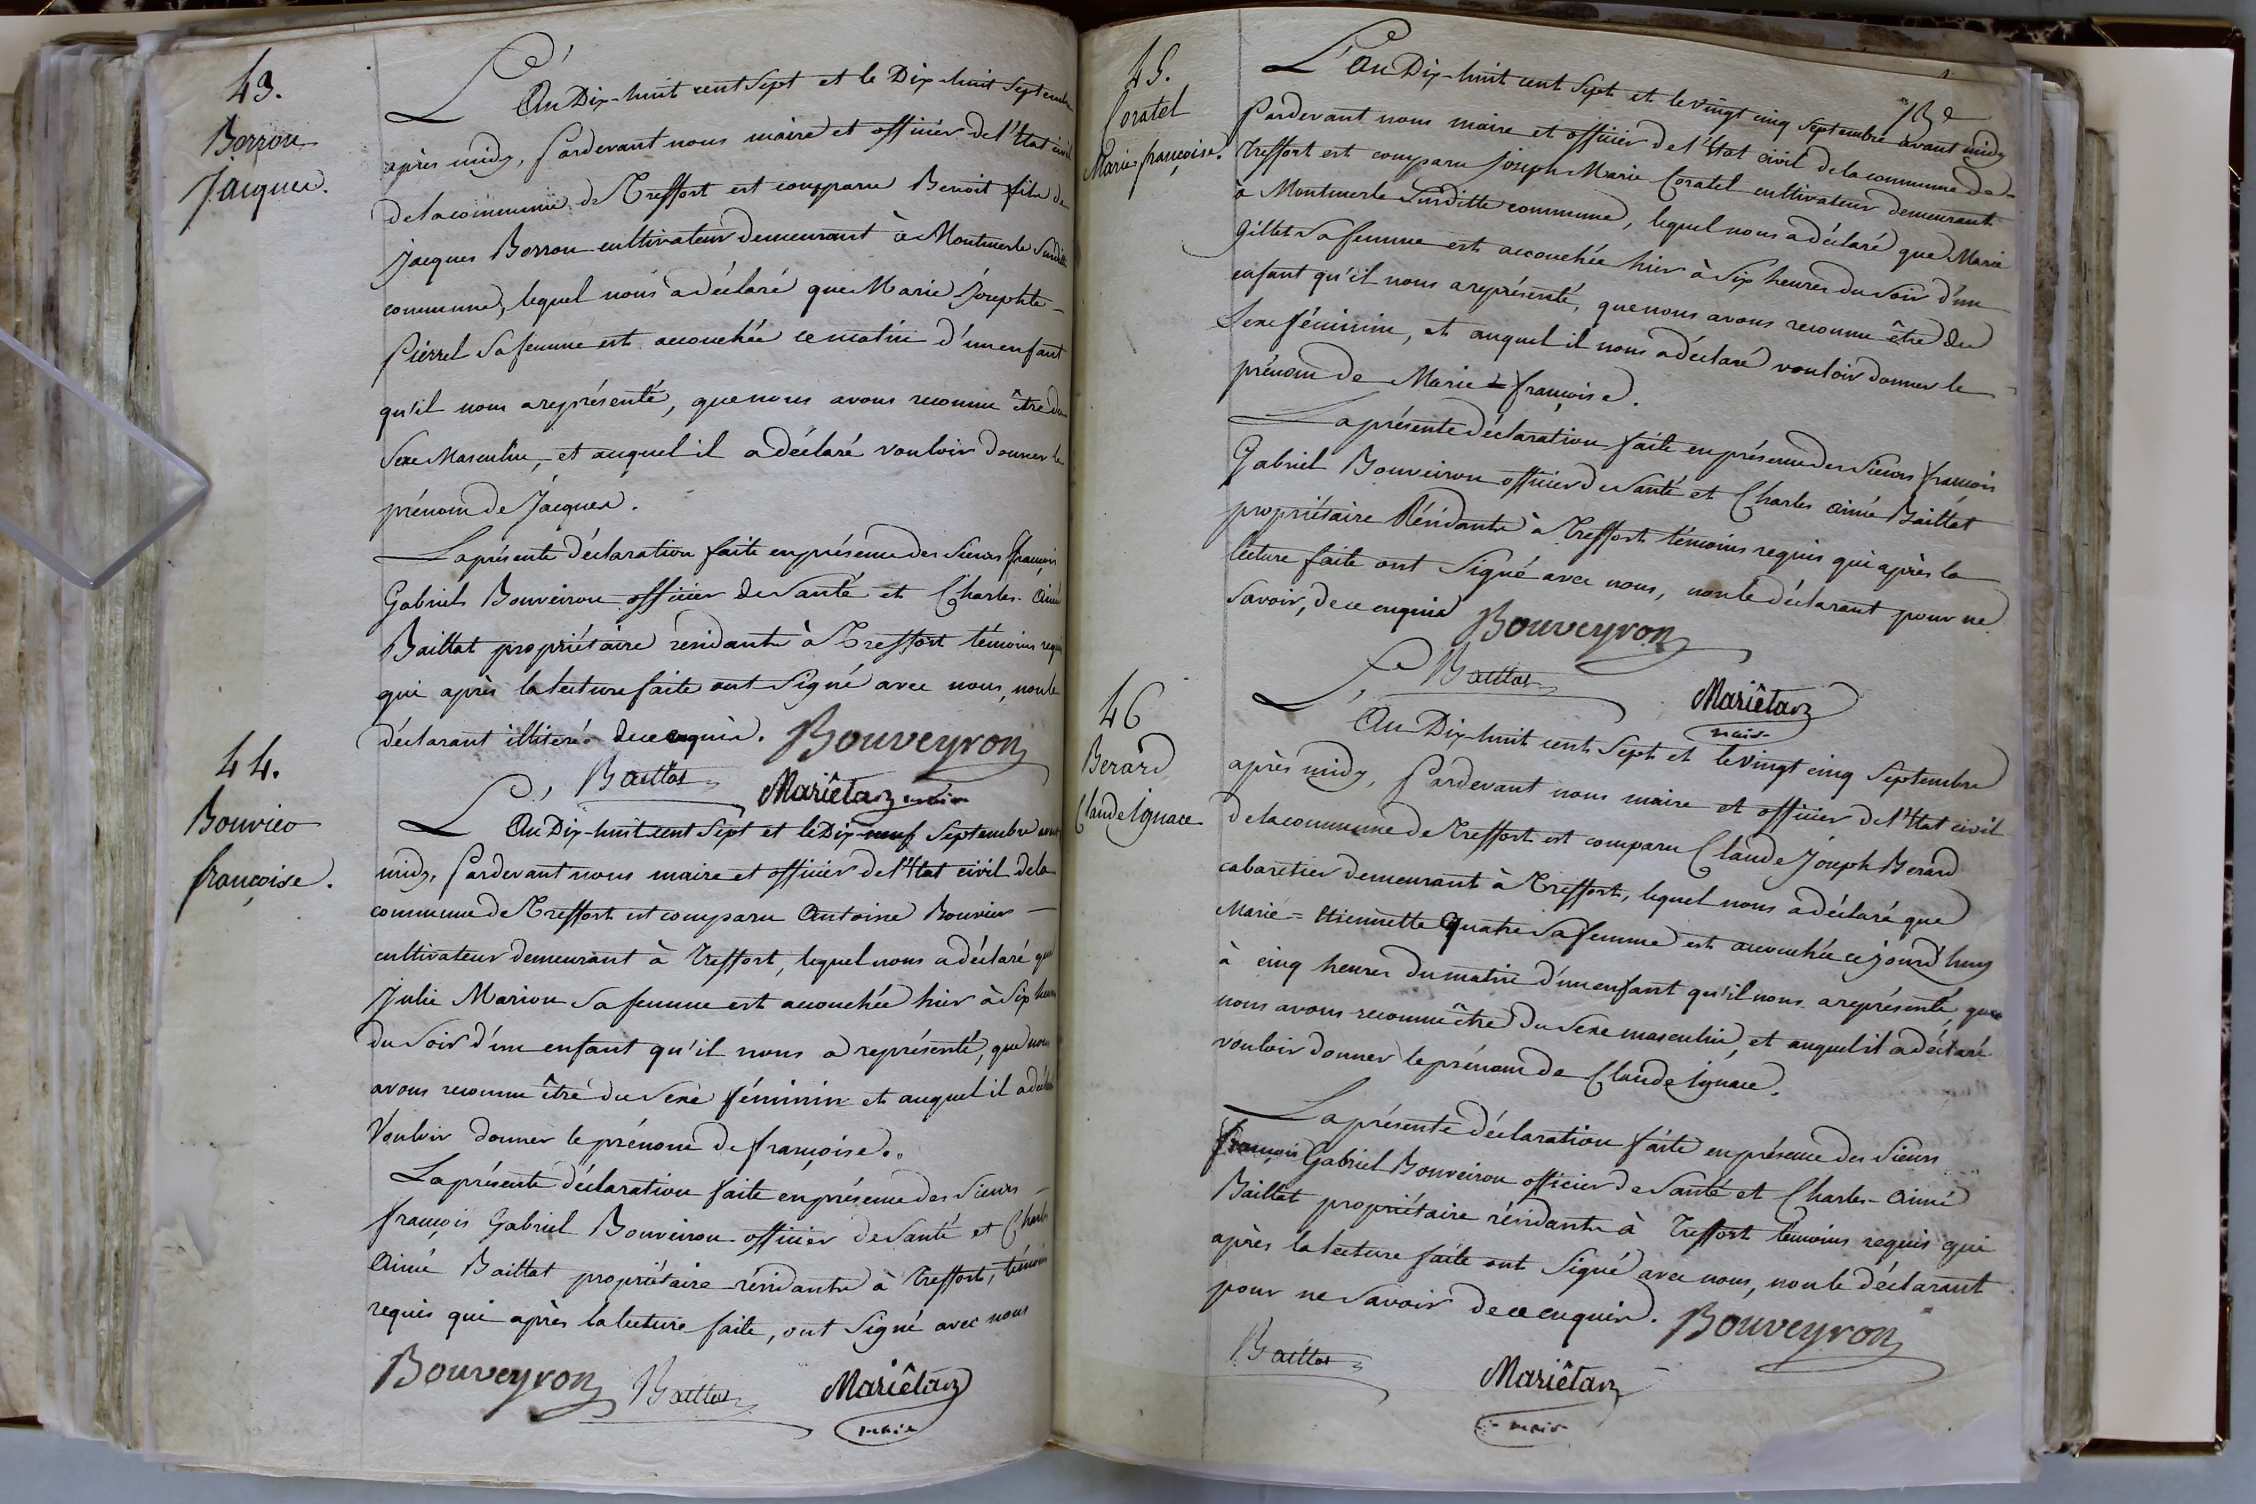 43.
Borron
Jacques.
L'An Dix-huit cent Sept et le Dix huit Septembre
après midy, Pardevant nous maire et officier de l'Etat civil
de la commune de Treffort est comparu Benoit fils de
Jacques Borron cultivateur demeurant à Montmerle Susditte
commune, lequel nous a déclaré que Marie Josephte
Pierrel Sa femme est accouchée ce matin d'un enfant
qu'il nous a représenté, que nous avons reconnu être du
Sexe Masculin, et auquel il a déclaré vouloir donner le
prénom de Jacques.
La présente déclaration faite en présence des Sieurs françois
Gabriel Bouveiron officier de Santé et Charles Aimé
Baillat propriétaire résidants à Treffort témoins requis
qui après la lecture faite ont Signé avec nous, non le
déclarant illiteré de ce enquis. Bouveyron
Baillat Mariêtan maire
44.
Bouvier
françoise.
L'An Dix-huit cent Sept et le Dix-neuf Septembre avant
midy, Pardevant nous maire et officier de l'Etat civil de la
commune de Treffort est comparu Antoine Bouvier
cultivateur demeurant à Treffort, lequel nous a déclaré que
Julie Marion Sa femme est accouchée hier à Six heures
du Soir d'un enfant qu'il nous a représenté, que nous
avons reconnu être du Sexe féminin et auquel il a déclaré
Vouloir donner le prénom de françoise..
La présente déclaration faite en présence des Sieurs
françois Gabriel Bouveiron officier de Santé et Charles
Aimé Baillat propriétaire résidants à Treffort, témoins
requis qui après la lecture faite, ont Signé avec nous
Bouveyron Baillat Mariêtan
maire
45.
Coratel
Marie françoise.
L'An Dix-huit cent Sept et le vingt cinq Septembre avant midy
Pardevant nous maire et officier de l'Etat civil de la commune de
Treffort est comparu Joseph Marie Coratel cultivateur demeurant
à Montmerle Susditte commune, lequel nous a déclaré que Marie
Gillet Sa femme est accouchée hier à Six heures du Soir d'un
enfant qu'il nous a représenté, que nous avons reconnu être du
Sexe féminin, et auquel il nous a déclaré vouloir donner le
prénom de Marie = françoise.
La présente déclaration faite en présence des Sieurs françois
Gabriel Bouveiron officier de Santé et Charles Aimé Baillat
propriétaire Résidants à Treffort témoins requis qui après la
lecture faite ont Signé avec nous, non le déclarant pour ne
Savoir, de ce enquis Bouveyron
Baillat Mariêtan
maire
46
Berard
Claude Ignace
L'An Dix-huit cent Sept et le Vingt cinq Septembre
après midy, Pardevant nous maire et officier de l'Etat civil
de la commune de Treffort est comparu Claude Joseph Berard
cabaretier demeurant à Treffort, lequel nous a déclaré que
Marie = Etiennette Quatre Sa femme est accouchée ce jourd'huy
à cinq heures du matin d'un enfant qu'il nous a représenté, que
nous avons reconnu être du Sexe masculin, et auquel il a déclaré
vouloir donner le prénom de Claude Ignace.
La présente déclaration faite en présence des Sieurs
françois Gabriel Bouveiron officier de Santé et Charles-Aimé
Baillat propriétaire résidants à Treffort témoins requis qui
après la lecture faite ont Signé avec nous, non le déclarant
pour ne Savoir de ce enquis. Bouveyron
Baillat Mariêtan
maire